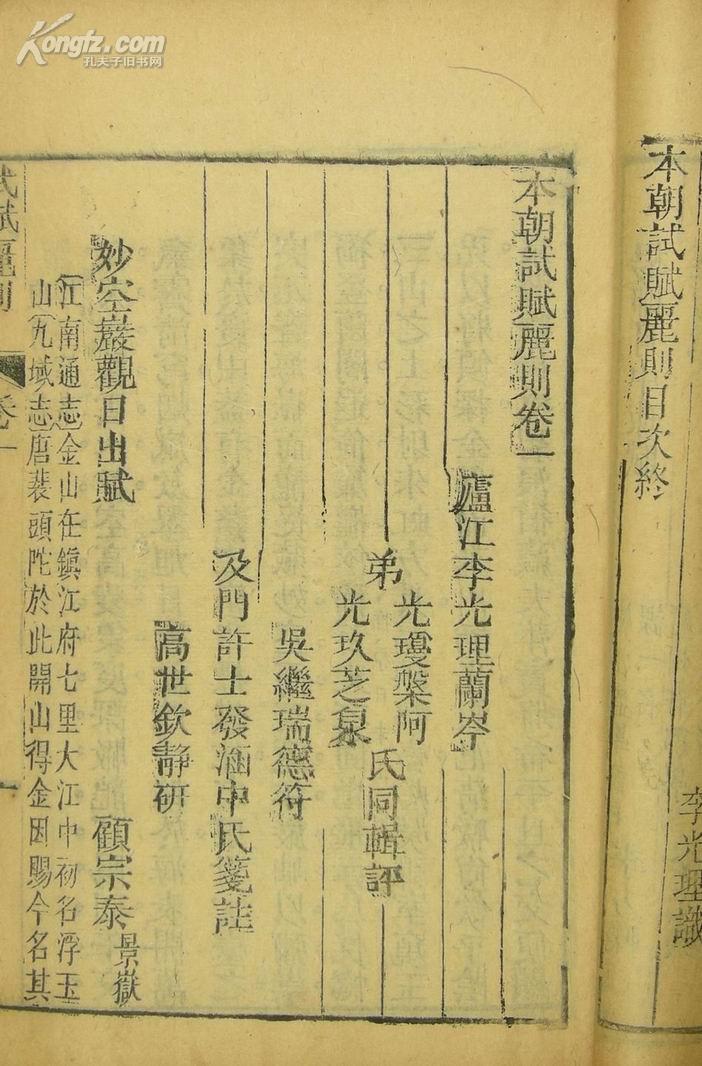 Kongfz.com
孔夫子旧书网
本朝試賦麗則目次終
李光理識
本朝試賦麗則卷一
廬江李光理蘭岑
弟
光瓊槃阿
光玖芝泉
氏同輯評
吳繼瑞德符
及門許士發涵中氏箋註
高世欽靜研
妙空巖觀日出賦
顧宗泰景嶽
江南通志金山在鎮江府七里大江中初名浮玉
山九域志唐裴頭陀於此開山得金因賜今名其
試賦麗則
卷一
一